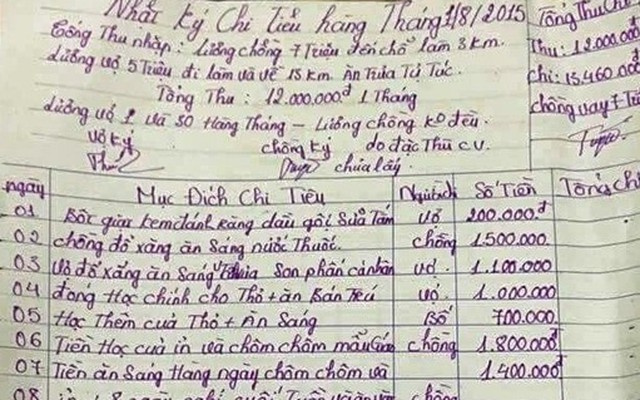 Nhật Ký Chi Tiêu hàng Tháng 1/8/2015
Tổng Thu Chi
Tổng Thu nhập: Lương chồng 7 Triệu đến chỗ làm 3 km.
Thu: 12.000.000đ
Lương vợ 5 Triệu đi làm và về 15 km. Ăn Trưa Tự Túc.
Chi: 15.460.000đ
Tổng Thu: 12.000.000đ 1 Tháng
chồng vay 7
Lương vợ Hàng Tháng – Lương chồng ko đều.
vợ ký chồng ký do đặc Thù cv.
chưa lấy.
ngày Mục Đích Chi Tiêu Số Tiền Tổng Chi
01 Bột giặt kem đánh răng dầu gội Sữa Tắm vợ 200.000đ
02 chồng đổ xăng ăn Sáng nước Thuốc. chồng 1.500.000
03 Vợ đổ xăng ăn Sáng Son phấn cá nhân vợ. 1.100.000
04 đóng Học chính cho Thỏ + ăn Bán Trú vợ. 1.000.000
05 Học Thêm của Thỏ + Ăn Sáng Bố 700.000
06 Tiền Học của in và chôm chôm mẫu chồng 1.800.000đ
07 Tiền ăn Sáng Hàng ngày chôm chôm và 1.400.000đ
08 chồng